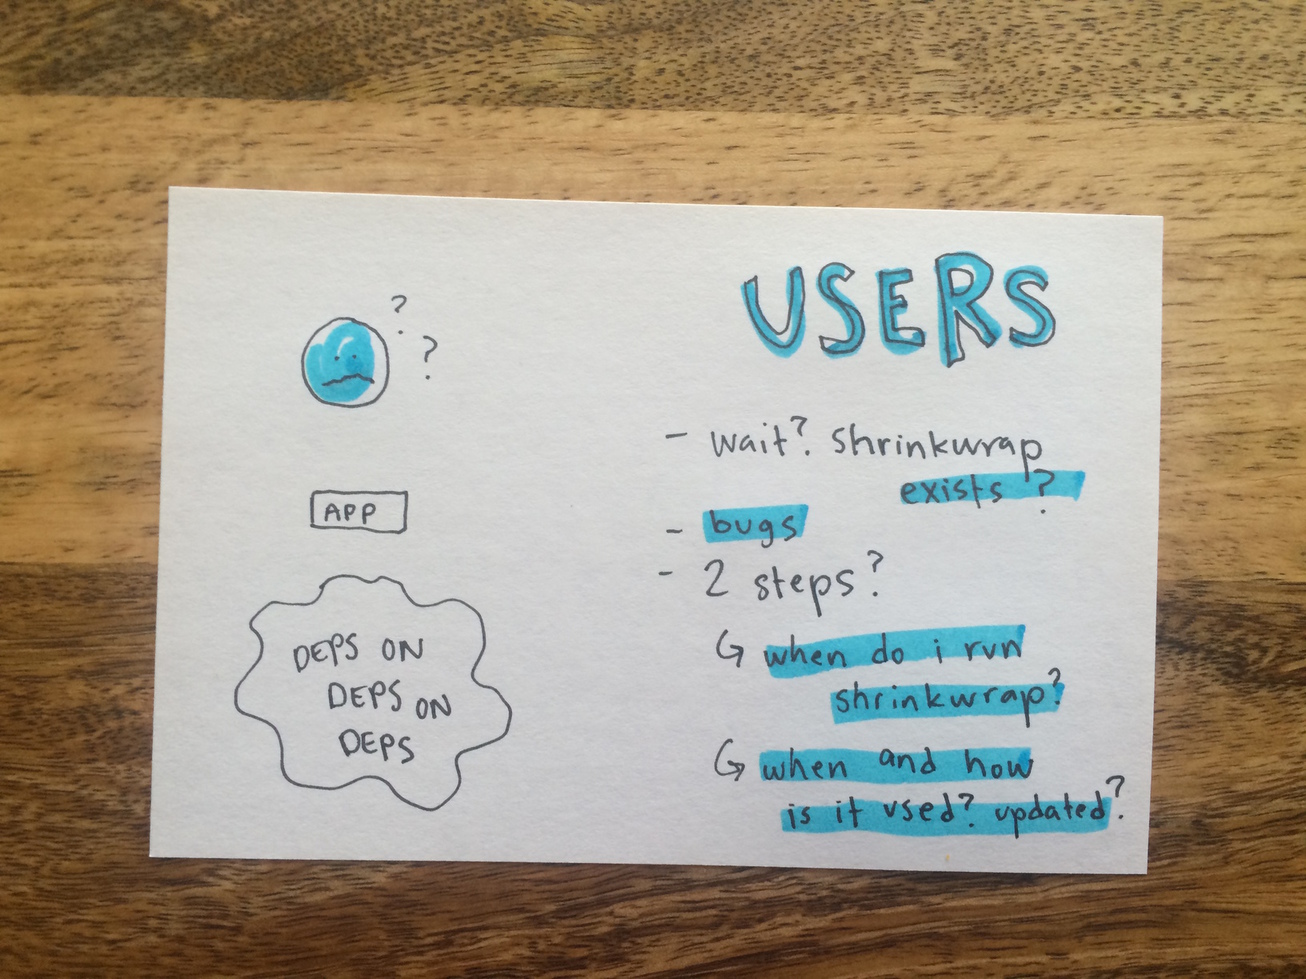 ?
?
APP
DEPS ON
DEPS ON
DEPS
USERS
- wait? shrinkwrap
exists?
- bugs
- 2 steps?
↳ when do i run
shrinkwrap?
↳ when and how
is it used? updated?